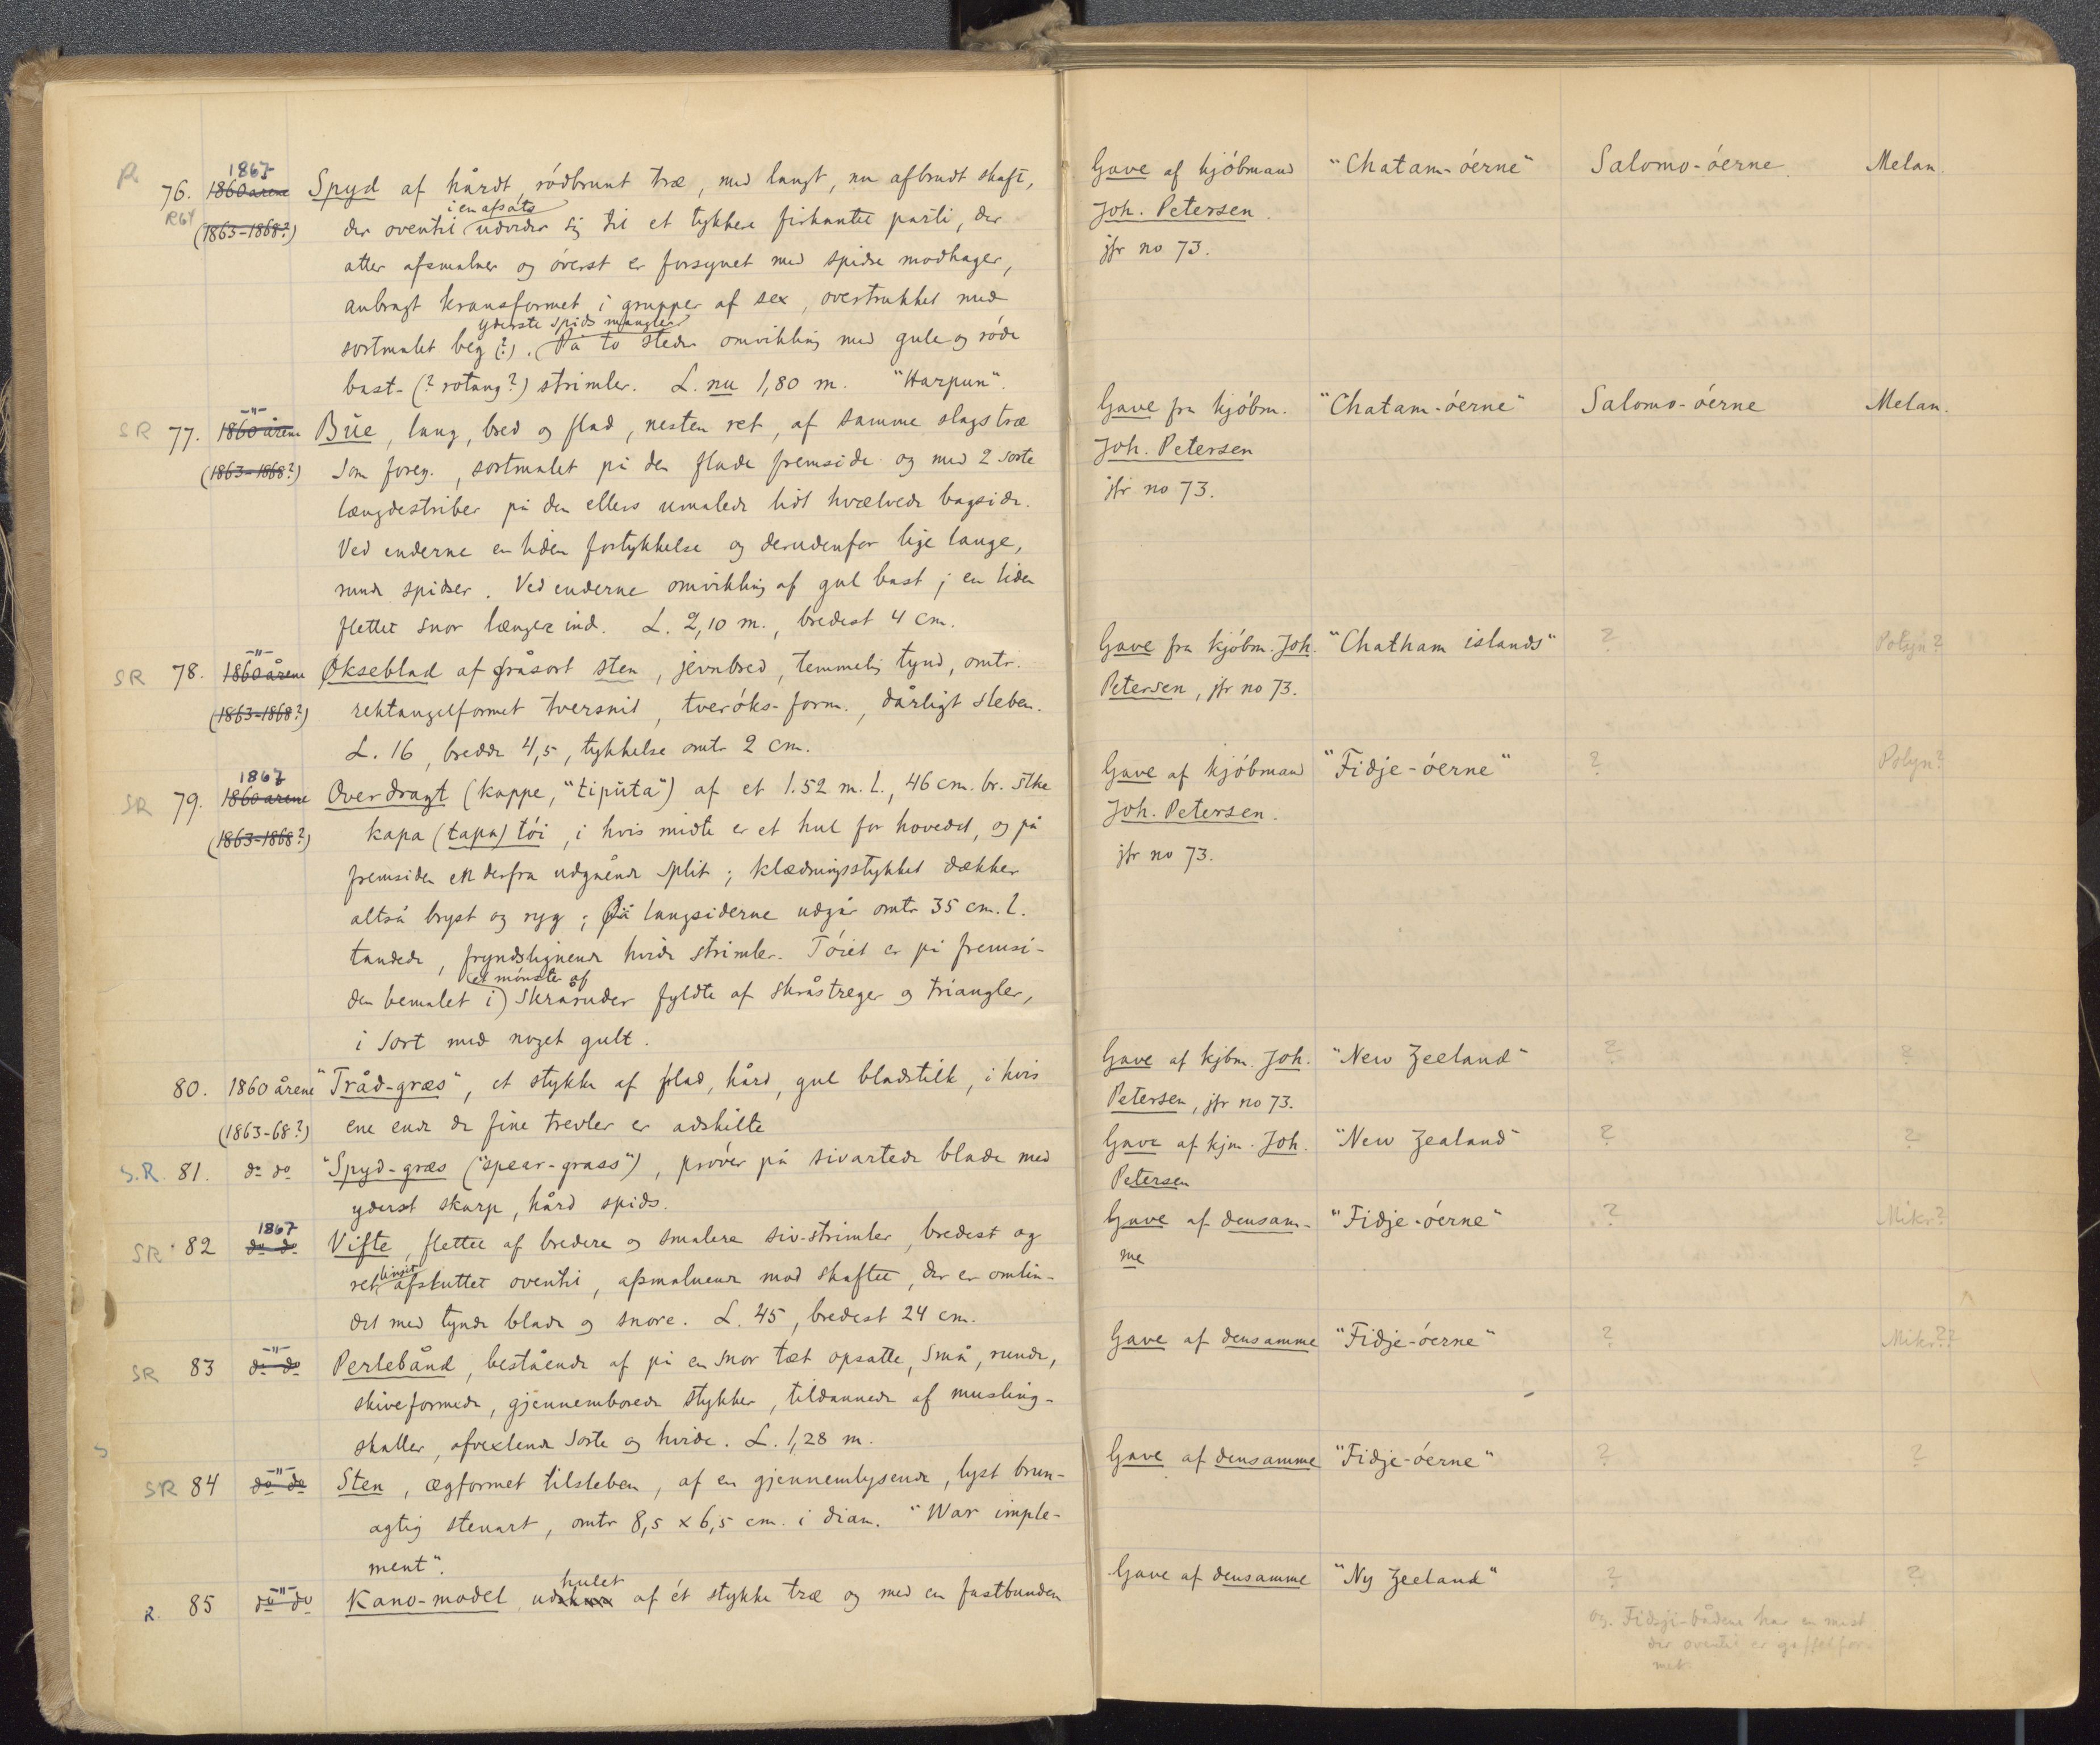 R. 1867
76. 1860 årene Spyd af hårdt, rödbrunt træ, med langt, nu afbrudt skaft,
R64 i en afsats
(1863-1868?) der oventil udvider sig til et tykkere firkantet parti, der
atter afsmalner og överst er forsynet med spidse modhager,
anbragt kransformet i grupper af sex, overtrukket med
yderste spids mangler
sortmalet beg (?). På to steder omvikling med gule og röde
bast- (? rotang?) strimler. L. nu 1,80 m. "Harpun".
-"-
SR 77. 1860 årene Bue, lang, bred og flad, nesten ret, af samme slags træ
(1863-1868?) som foreg., sortmalet på den flade fremside og med 2 sorte
længdestriber på den ellers umalede lidt hvælvede bagside.
Ved enderne en liden fortykkelse og derudenfor lige lange,
runde spidser. Ved enderne omvikling af gul bast; en liden
flettet snor længere ind. L. 2,10 m., bredest 4 cm.
-"-
SR 78. 1860 årene Økseblad af gråsort sten, jevnbred, temmelig tynd, omtr.
(1863-1868?) rektangelformet tversnit, tveröks-form., dårligt sleben.
L. 16, bredde 4,5, tykkelse omtr 2 cm.
1867
SR 79. 1860 årene Overdragt (kappe, "tipúta") af et 1.52 m. l., 46 cm. br. stke
(1863-1868?) kapa (tapa) töi, i hvis midte er et hul for hovedet, og på
fremsiden en derfra udgående split; klædningsstykket dækker
altså bryst og ryg; På langsiderne udgår omtr 35 cm. l.
tandede, fryndslignende hvide strimler. Töiet er på fremsi-
et mönster af
den bemalet i skråruder fyldte af skråstreger og triangler,
i sort med noget gult.
80. 1860 årene "Tråd-græs", et stykke af flad, hård, gul bladstilk, i hvis
(1863-68?) ene ende de fine trevler er adskilte
S.R. 81. do do "Spyd-græs ("spear-grass"), pröver på sivartede blade med
yderst skarp, hård spids.
1867
SR 82 do do Vifte, flettet af bredere og smalere siv-strimler, bredest og
linjet
ret afskuttet oventil, afsmalnende mod skaftet, der er omvin-
det med tynde blade og snore. L. 45, bredest 24 cm.
-"-
SR 83 do do Perlebånd, bestående af på en snor tæt opsatte, små, runde,
skiveformede, gjennemborede stykker, tildannede af musling-
skaller, afvexlende sorte og hvide. L. 1,28 m.
-"-
SR 84 do do Sten, ægformet tilsleben, af en gjennemlysende, lyst brun-
agtig stenart, omtr 8,5 x 6,5 cm. i diam. "War imple-
ment".
-"- hulet
R. 85 do do Kano-model ud af ét stykke træ og med en fastbunden
Gave af kjöbmand "Chatam-öerne" Salomo-öerne. Melan.
Joh. Petersen.
jfr no 73.
Gave fra kjöbm. "Chatam-öerne" Salomo-öerne Melan.
Joh. Petersen
jfr no 73.
Gave fra kjöbm. Joh. "Chatham islands" ? Polyn?
Petersen, jfr no 73.
Gave af kjöbmand "Fidje-öerne" ? Polyn?
Joh. Petersen.
jfr no 73.
Gave af kjbm. Joh. "New Zeeland" ? ?
Petersen, jfr no 73.
Gave af kjm. Joh. "New Zealand" ? ?
Petersen
Gave af densam- "Fidje-öerne" ? Mikr?
me
Gave af densamme "Fidje-öerne" ? Mikr??
Gave af densamme "Fidje-öerne" ? ?
Gave af densamme "Ny Zeeland" ? ?
Fidsji-bådene har en mast
der oventil er gaffelfor-
met.